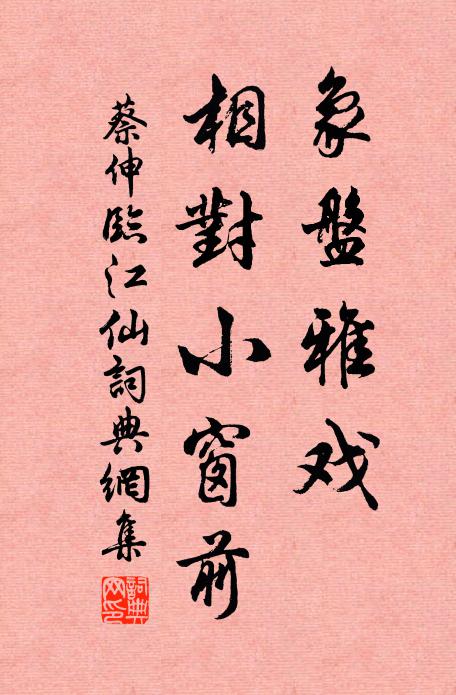 象盤雅戏
相對小窗前
蔡伸臨江仙詞典網集
詞典网印